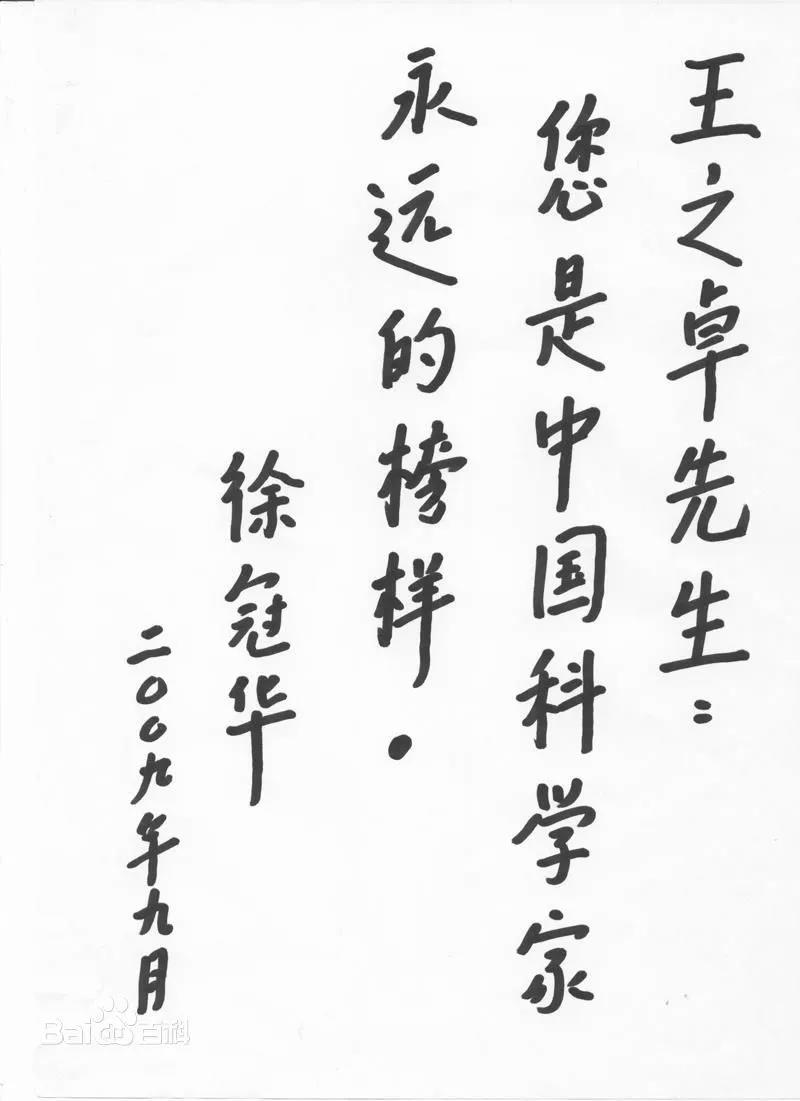 王之卓先生：
您是中国科学家
永远的榜样.
徐冠华
二〇〇九年九月
Bai百科